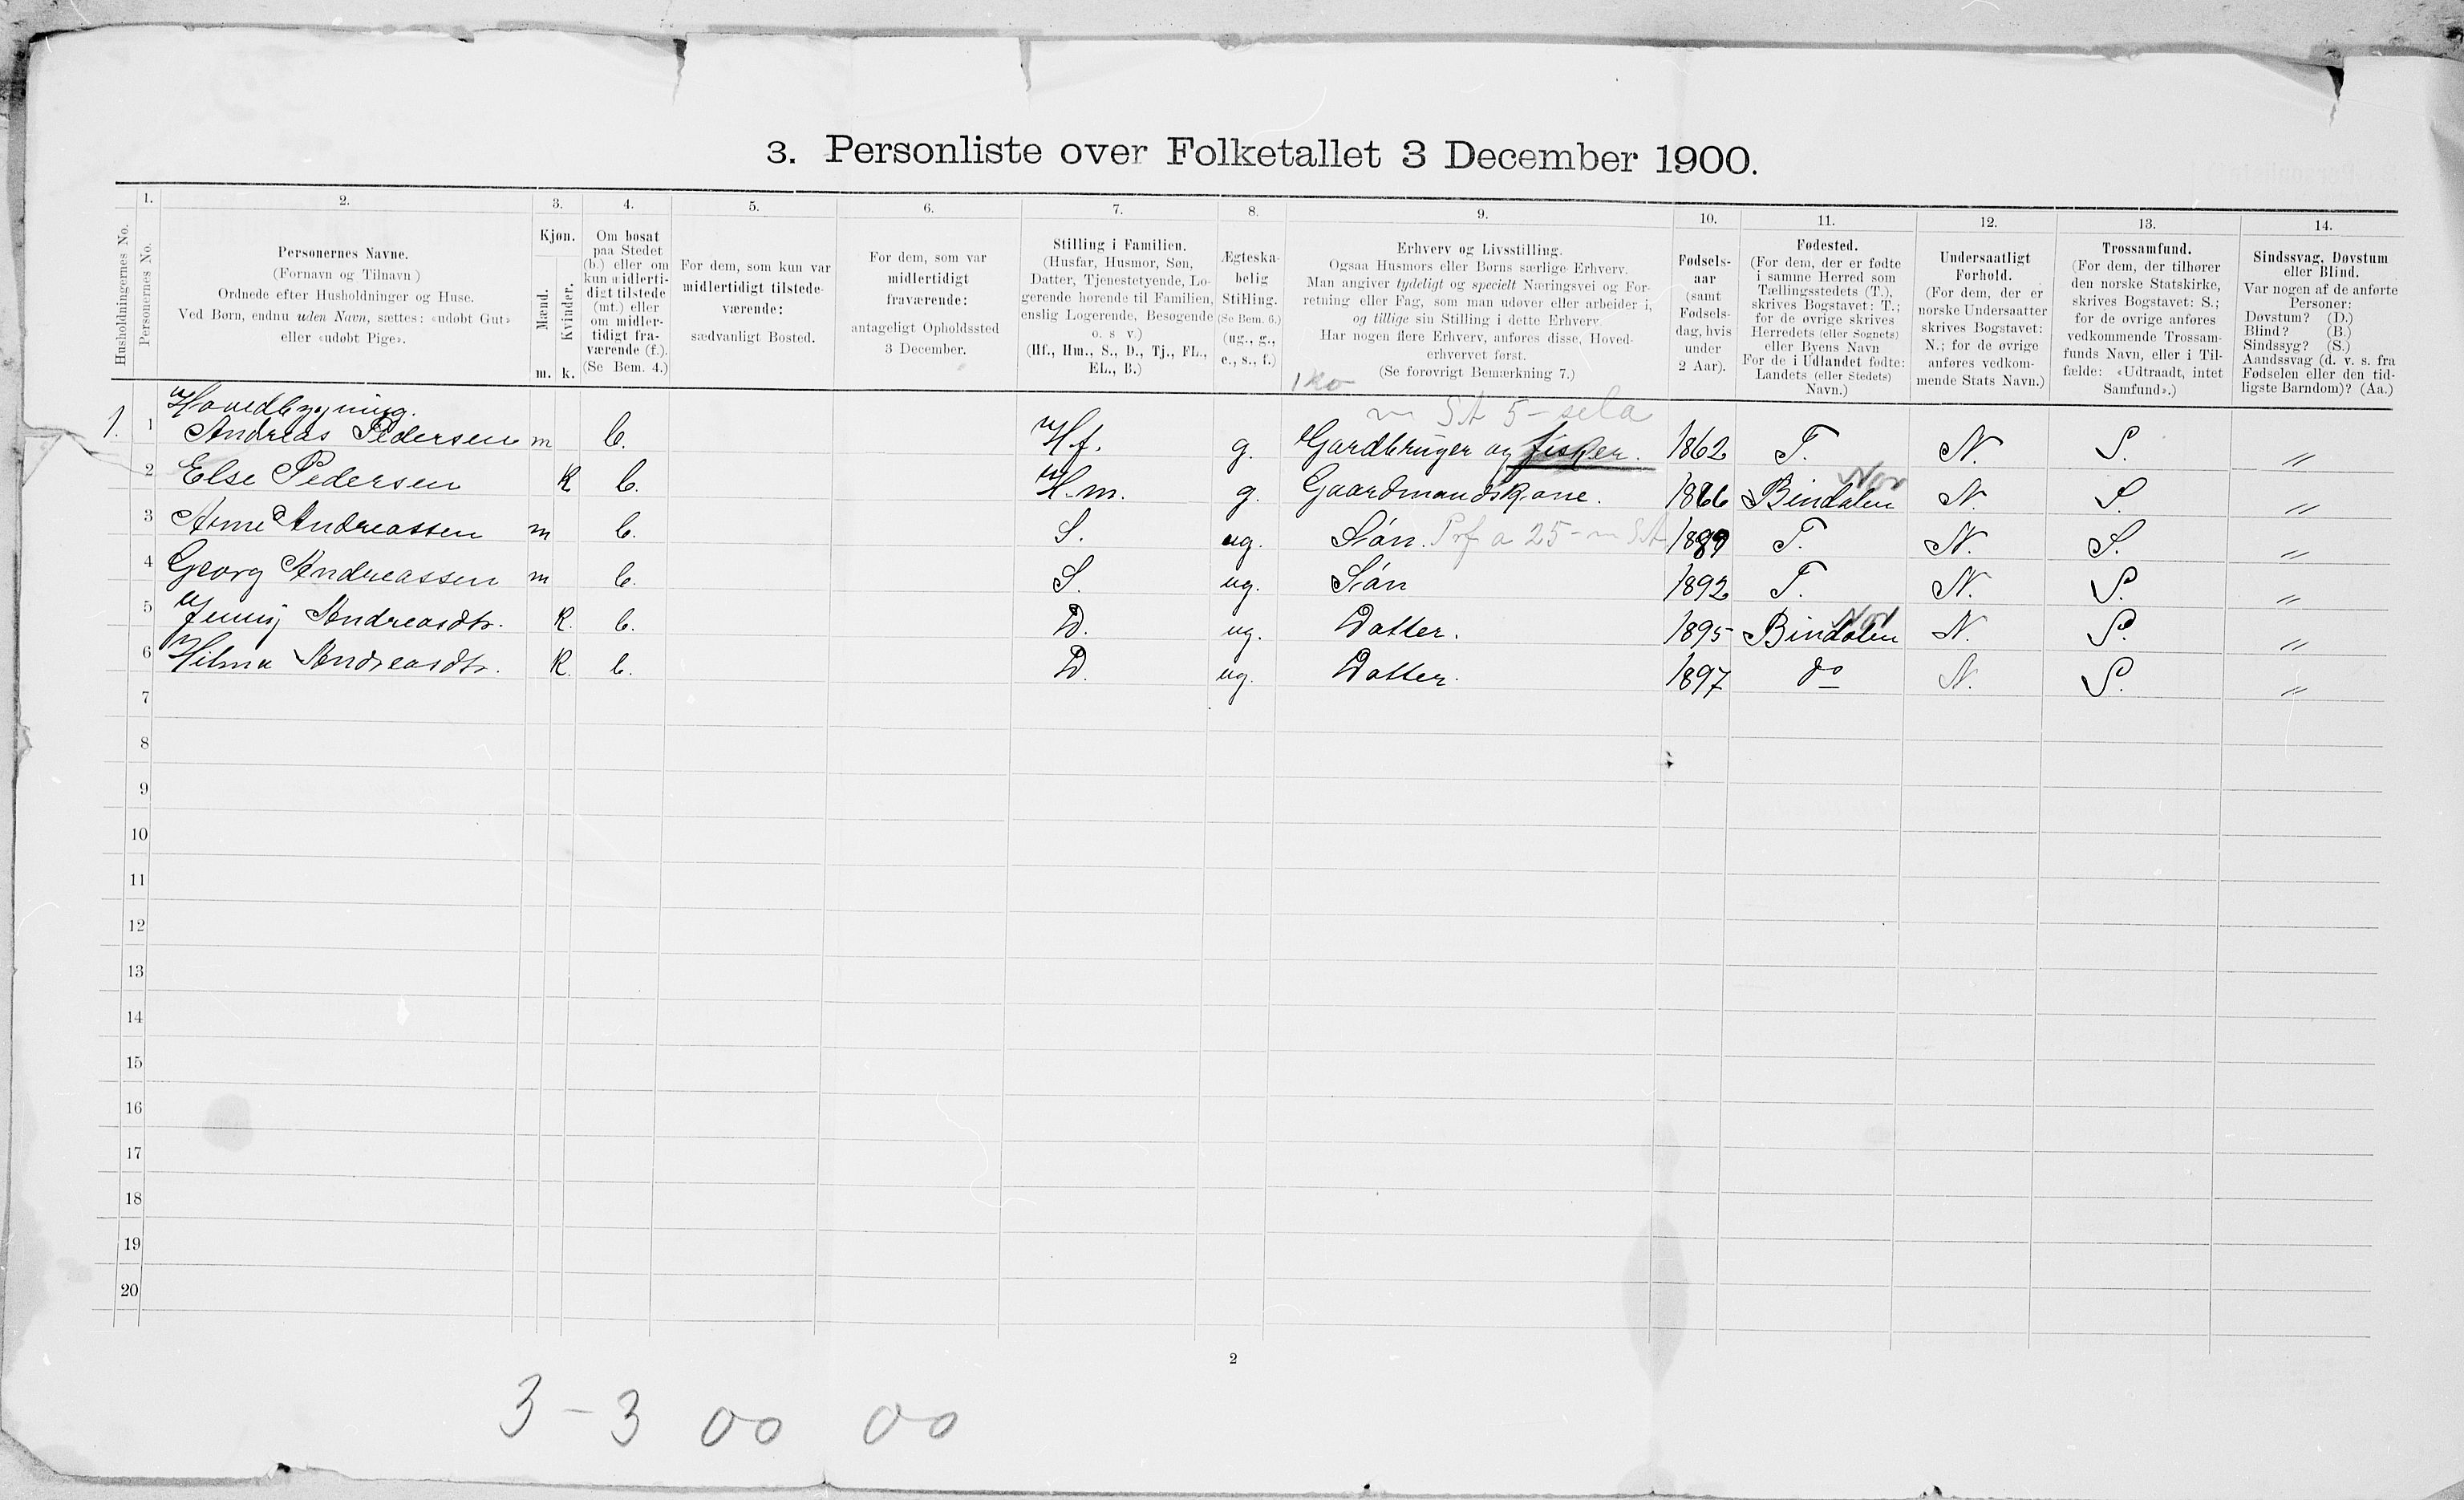 3. Personliste over Folketallet 3 December 1900.
1. 2. 3. 4. 5. 6. 7. 8. 9. 10. 11. 12. 13. 14.
Husholdningernes No.
Personernes No.
Personernes Navne.
(Fornavn og Tilnavn)
Ordnede efter Husholdninger og Huse.
Ved Børn, endnu uden Navn, sættes: «udøbt Gut»
eller «udøbt Pige».
Kjøn.
Mænd.
Kvinder.
m. k.
Om bosat
paa Stedet
(b.) eller om
kun midlerti-
digt tilstede
(mt.) eller
om midler-
tidigt fra-
værende (f.).
(Se Bem. 4.)
For dem, som kun var
midlertidigt tilstede-
værende:
sædvanligt Bosted.
For dem, som var
midlertidigt
fraværende:
antageligt Opholdssted
3 December.
Stilling i Familien.
(Husfar, Husmor, Søn,
Datter, Tjenestetyende, Lo-
gerende hørende til Familien,
enslig Logerende, Besøgende
o. s v.)
(Hf., Hm., S., D., Tj., FL.,
EL., B.)
Ægteska-
belig
Stilling.
(Se Bem. 6.)
(ug., g.,
e., s., f.)
Erhverv og Livsstilling.
Ogsaa Husmors eller Børns særlige Erhverv.
Man angiver tydeligt og specielt Næringsvei og For-
retning eller Fag, som man udøver eller arbeider i,
og tillige sin Stilling i dette Erhverv.
Har nogen flere Erhverv, anføres disse, Hoved-
erhvervet først.
(Se forøvrigt Bemærkning 7.)
Fødsels-
aar
(samt
Fødsels-
dag, hvis
under
2 Aar).
Fødested.
(For dem, der er fødte
i samme Herred som
Tællingsstedets (T.),
skrives Bogstavet: T.;
for de øvrige skrives
Herredets (eller Sognets)
eller Byens Navn
For de i Udlandet fødte:
Landets (eller Stedets)
Navn.)
Undersaatligt
Forhold.
(For dem, der er
norske Undersaatter
skrives Bogstavet:
N.; for de øvrige
anføres vedkom-
mende Stats Navn.)
Trossamfund.
(For dem, der tilhører
den norske Statskirke,
skrives Bogstavet: S.;
for de øvrige anføres
vedkommende Trossam-
funds Navn, eller i Til-
fælde: «Udtraadt, intet
Samfund».)
Sindssvag, Døvstum
eller Blind.
Var nogen af de anførte
Personer:
Døvstum? (D.)
Blind? (B.)
Sindssyg? (S.)
Aandssvag (d. v. s. fra
Fødselen eller den tid-
ligste Barndom)? (Aa.)
Hovedbygning.
1. 1 Andreas Pedersen m b. Hf. g. Gardbruger og fisker. 1862 T. N. S. "
2 Else Pedersen k b. H.m. g. Gaardmandskone. 1866 Bindalen Nor N. S. "
3 Arne Andreassen m b. S. ug. Søn. 1889 T. N. S. "
4 Georg Andreassen m b. S. ug. Søn 1892 T. N. S. "
5 Jenny Andreasdtr. k. b. D. ug. Datter. 1895 Bindalen Nor N. S. "
6 Hilma Andreasdtr. k. b. D. ug. Datter. 1897 do N. S. "
7
8
9
10
11
12
13
14
15
16
17
18
19
20
2
3 - 3 00 00